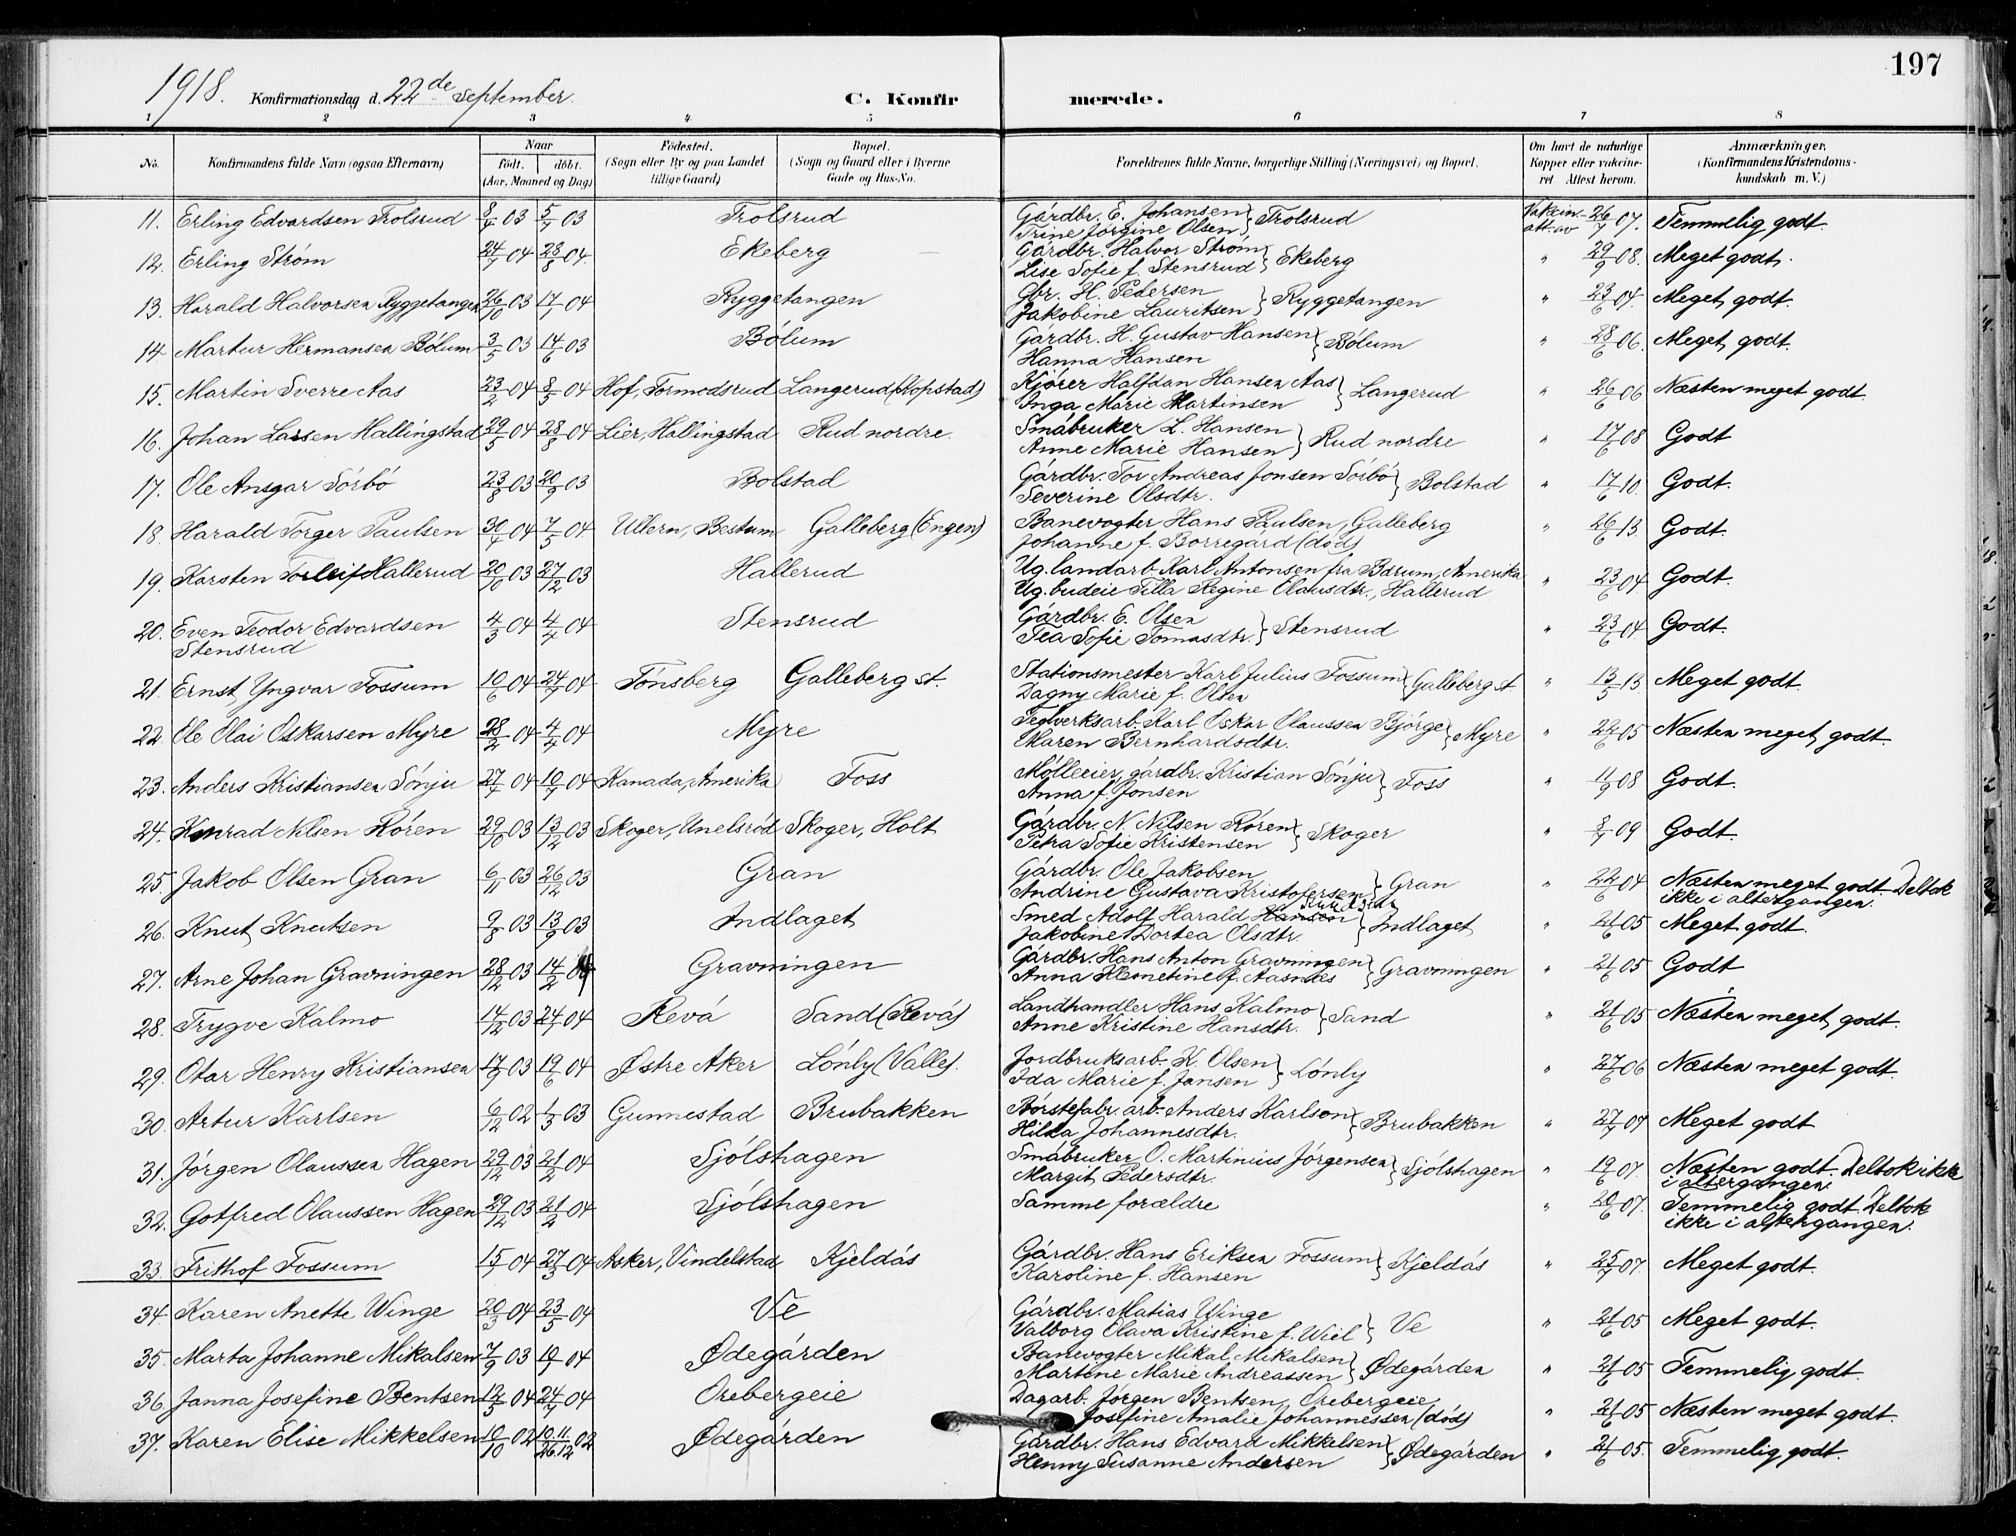 197
1918. Konfirmationsdag d. 22de September. C. Konfirmerede.
1 2 3 4 5 6 7 8
No. Konfirmandens fulde Navn (ogsaa Efternavn) Naar født. døbt. (Aar, Maaned og Dag) Fødested. (Sogn eller By og paa Landet tillige Gaard) Bopæl. (Sogn og Gaard eller i Byerne Gade og Hus-No. Forældrenes fulde Navne, borgerlige Stilling (Næringsvei) og Bopæl. Om havt de naturlige Kopper eller vaccineret. Attest herom. Anmærkninger. (Konfirmandens Kristendomskundskab m. V.)
11. Erling Edvardsen Trolsrud 8/4 03 5/7 03 Trolsrud Gårdbr. E. Johansen Trine Jørgine Olsen } Trolsrud Vakcin.att. av 26/7 07. Temmelig godt
12. Erling Strøm 24/7 04 28/8 04. Ekeberg Gårdbr. Halvor Strøm Lise Sofie f. Stensrud } Ekeberg " 29/9 08. Meget godt.
13. Harald Halvorsen Ryggetangen 26/10 03 17/1 04 Ryggetangen Gbr. H. Pedersen Jakobine Lauritsen } Ryggetangen " 23/6 04. Meget godt.
14. Martur Hermansen Bólum 3/5 03 14/6 03 Bólum Gårdbr. H. Gustav Hansen Hanna Hansen } Bólum " 28/6 06. Meget godt.
15. Martin Sverre Aas 23/2 04 8/5 04 Hof, Tormodsrud Langerud (Kopstad) Kjører Halfdan Hansen Aas Inga Marie Martinsen } Langerud " 26/6 06 Næsten meget godt
16. Johan Larsen Hallingstad 29/5 04 28/8 04 Lier, Hallingstad Rud nordre. Småbruker L. Hansen Anne Marie Hansen } Rud nordre " 17/6 08 Godt
17. Ole Ansgar Sórbó 23/8 03 20/9 03 Bolstad Gårdbr. Tov Andreas Jonsen Sórbó Severine Olsdtr. } Bolstad " 17/6 10. Godt.
18. Harald Torger Paulsen 30/1 04 7/5 04 Ullern, Bestum Galleberg (Engen) Banevogter Hans Paulsen, Galleberg Johanne f. Borregård (død) " 26/6 13. Godt.
19. Karsten Torleif Hallerud 20/10 03 27/12 03 Hallerud Ug. landarb. Karl Antonsen fra Bærum, Amerika Ug. budeie Tilla Regine Olausdtr., Hallerud " 23/6 04 Godt.
20. Even Teodor Edvardsen Stensrud 4/3 04 4/4 04 Stensrud Gårdbr. E. Olsen Tea Sofie Tomasdtr. } Stensrud " 23/6 04 Godt.
21. Ernst Yngvar Fossum 10/6 04 24/7 04 Tónsberg Galleberg st. Stationsmester Karl Julius Fossum Dagny Marie f. Olsen } Galleberg st " 13/5 13 Meget godt.
22. Ole Olai Oskarsen Myre 28/2 04 4/4 04 Myre Teglverksarb. Karl Oskar Olaussen Bjórge Maren Bernhardsdtr. } Myre " 22/6 05 Næsten meget godt.
23. Anders Kristiansen Sónju 27/7 04 10/7 04 Kanada, Amerika Foss Mólleeier, gårdbr. Kristian Sónju Anna f. Jonsen } Foss " 11/9 08 Godt.
24. Konrad Nilsen Róren 29/10 03 13/12 03 Skoger, Unelsród Skoger, Holt Gårdbr. N. Nilsen Róren Petra Sofie Kristensen } Skoger " 8/7 09 Godt.
25. Jakob Olsen Gran 6/11 03 26/12 03 Gran Gårdbr. Ole Jakobsen Andrine Gustava Kristofersen } Gran " 22/6 04 Næsten meget godt. Deltok ikke i altergangen.
26. Knut Knutsen 9/8 03 13/9 03 Indlaget Smed Adolf Harald Hansen Jakobine Dortea Olsdtr. } Indlaget " 21/6 05 Meget godt.
27. Arne Johan Gravningen 28/12 03 14/2 04 Gravningen Gårdbr. Hans Anton Gravningen Anna Klemetine f. Aasnes } Gravningen " 21/6 05 Godt
28. Trygve Kalmo 14/12 03 24/1 04 Revå Sand (Revå) Landhandler Hans Kalmo Anne Kristine Hansdtr. } Sand " 21/6 05 Næsten meget godt.
29. Otar Henry Kristiansen 17/9 03 19/6 04 Østre Aker Lónby (Valle). Jordbruksarb. K. Olsen Ida Marie f. Jansen } Lónby " 27/6 06 Næsten meget godt.
30. Artur Karlsen 6/12 02 1/3 03 Gunnestad Brubakken Børstefabr. arb. Anders Karlson Hilda Johannesdtr. } Brubakken " 27/7 09 Meget godt
31. Jórgen Olaussen Hagen 29/12 03 21/2 04 Sjólshagen Småbruker O. Martinius Jórgensen Margit Pedersdtr. } Sjólshagen " 19/6 07. Næsten godt. Deltok ikke i altergangen.
32. Gotfred Olaussen Hagen 29/12 03 21/2 04 Sjólshagen Samme forældre " 20/6 07. Temmelig godt. Deltok ikke i altergangen.
33. Frithof Fossum 15/1 04 27/3 04 Asker, Vindelstad Kjeldås Gårdbr. Hans Eriksen Fossum Karoline f. Hansen } Kjeldås " 25/7 07. Meget godt.
34. Karen Anette Winge 20/3 04 23/5 04 Ve Gårdbr. Matias Winge Valborg Olava Kristine f. Wiel } Ve " 21/6 05 Meget godt.
35. Marta Johanne Mikalsen 7/9 03 10/1 04 Ødegården Banevogter Mikal Mikalsen Martene Marie Andreassen } Ødegården " 21/6 05 Temmelig godt.
36. Janna Josefine Bentsen 12/3 04 24/4 04 Orebergeie Dagarb. Jørgen Bentsen, Orebergeie, Josefine Amalie Johannessen (død) " 21/6 05 Næsten meget godt.
37. Karen Elise Mikkelsen 10/10 02 10.11/26.12 02 Ødegården Gårdbr. Hans Edvard Mikkelsen Henny Susanne Andersen } Ødegården " 21/6 05. Temmelig godt.